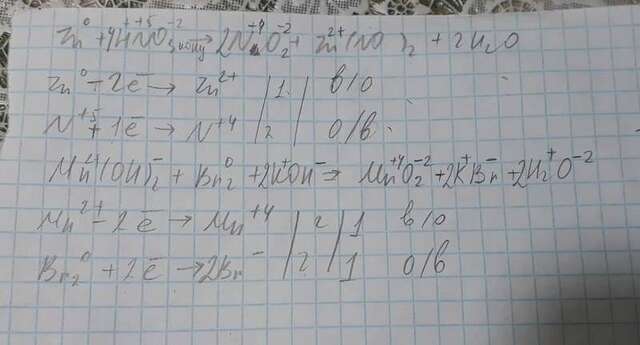 Zn⁰ + 4H⁺N⁺⁵O₃⁻² конц → 2N⁺⁴O₂⁻² + Zn²⁺(NO )₂ + 2H₂O
Zn⁰ - 2ē → Zn²⁺ | 1 | в/о
N⁺⁵ + 1ē → N⁺⁴ | 2 | о/в
Mn(OH)₂⁻ + Br₂⁰ + 2K⁺OH⁻ → Mn⁺⁴O₂⁻² + 2K⁺Br⁻ + 2H₂⁺O⁻²
Mn²⁺ - 2ē → Mn⁺⁴ | 2 | 1 в/о
Br₂⁰ + 2ē → 2Br⁻ | 2 | 1 о/в